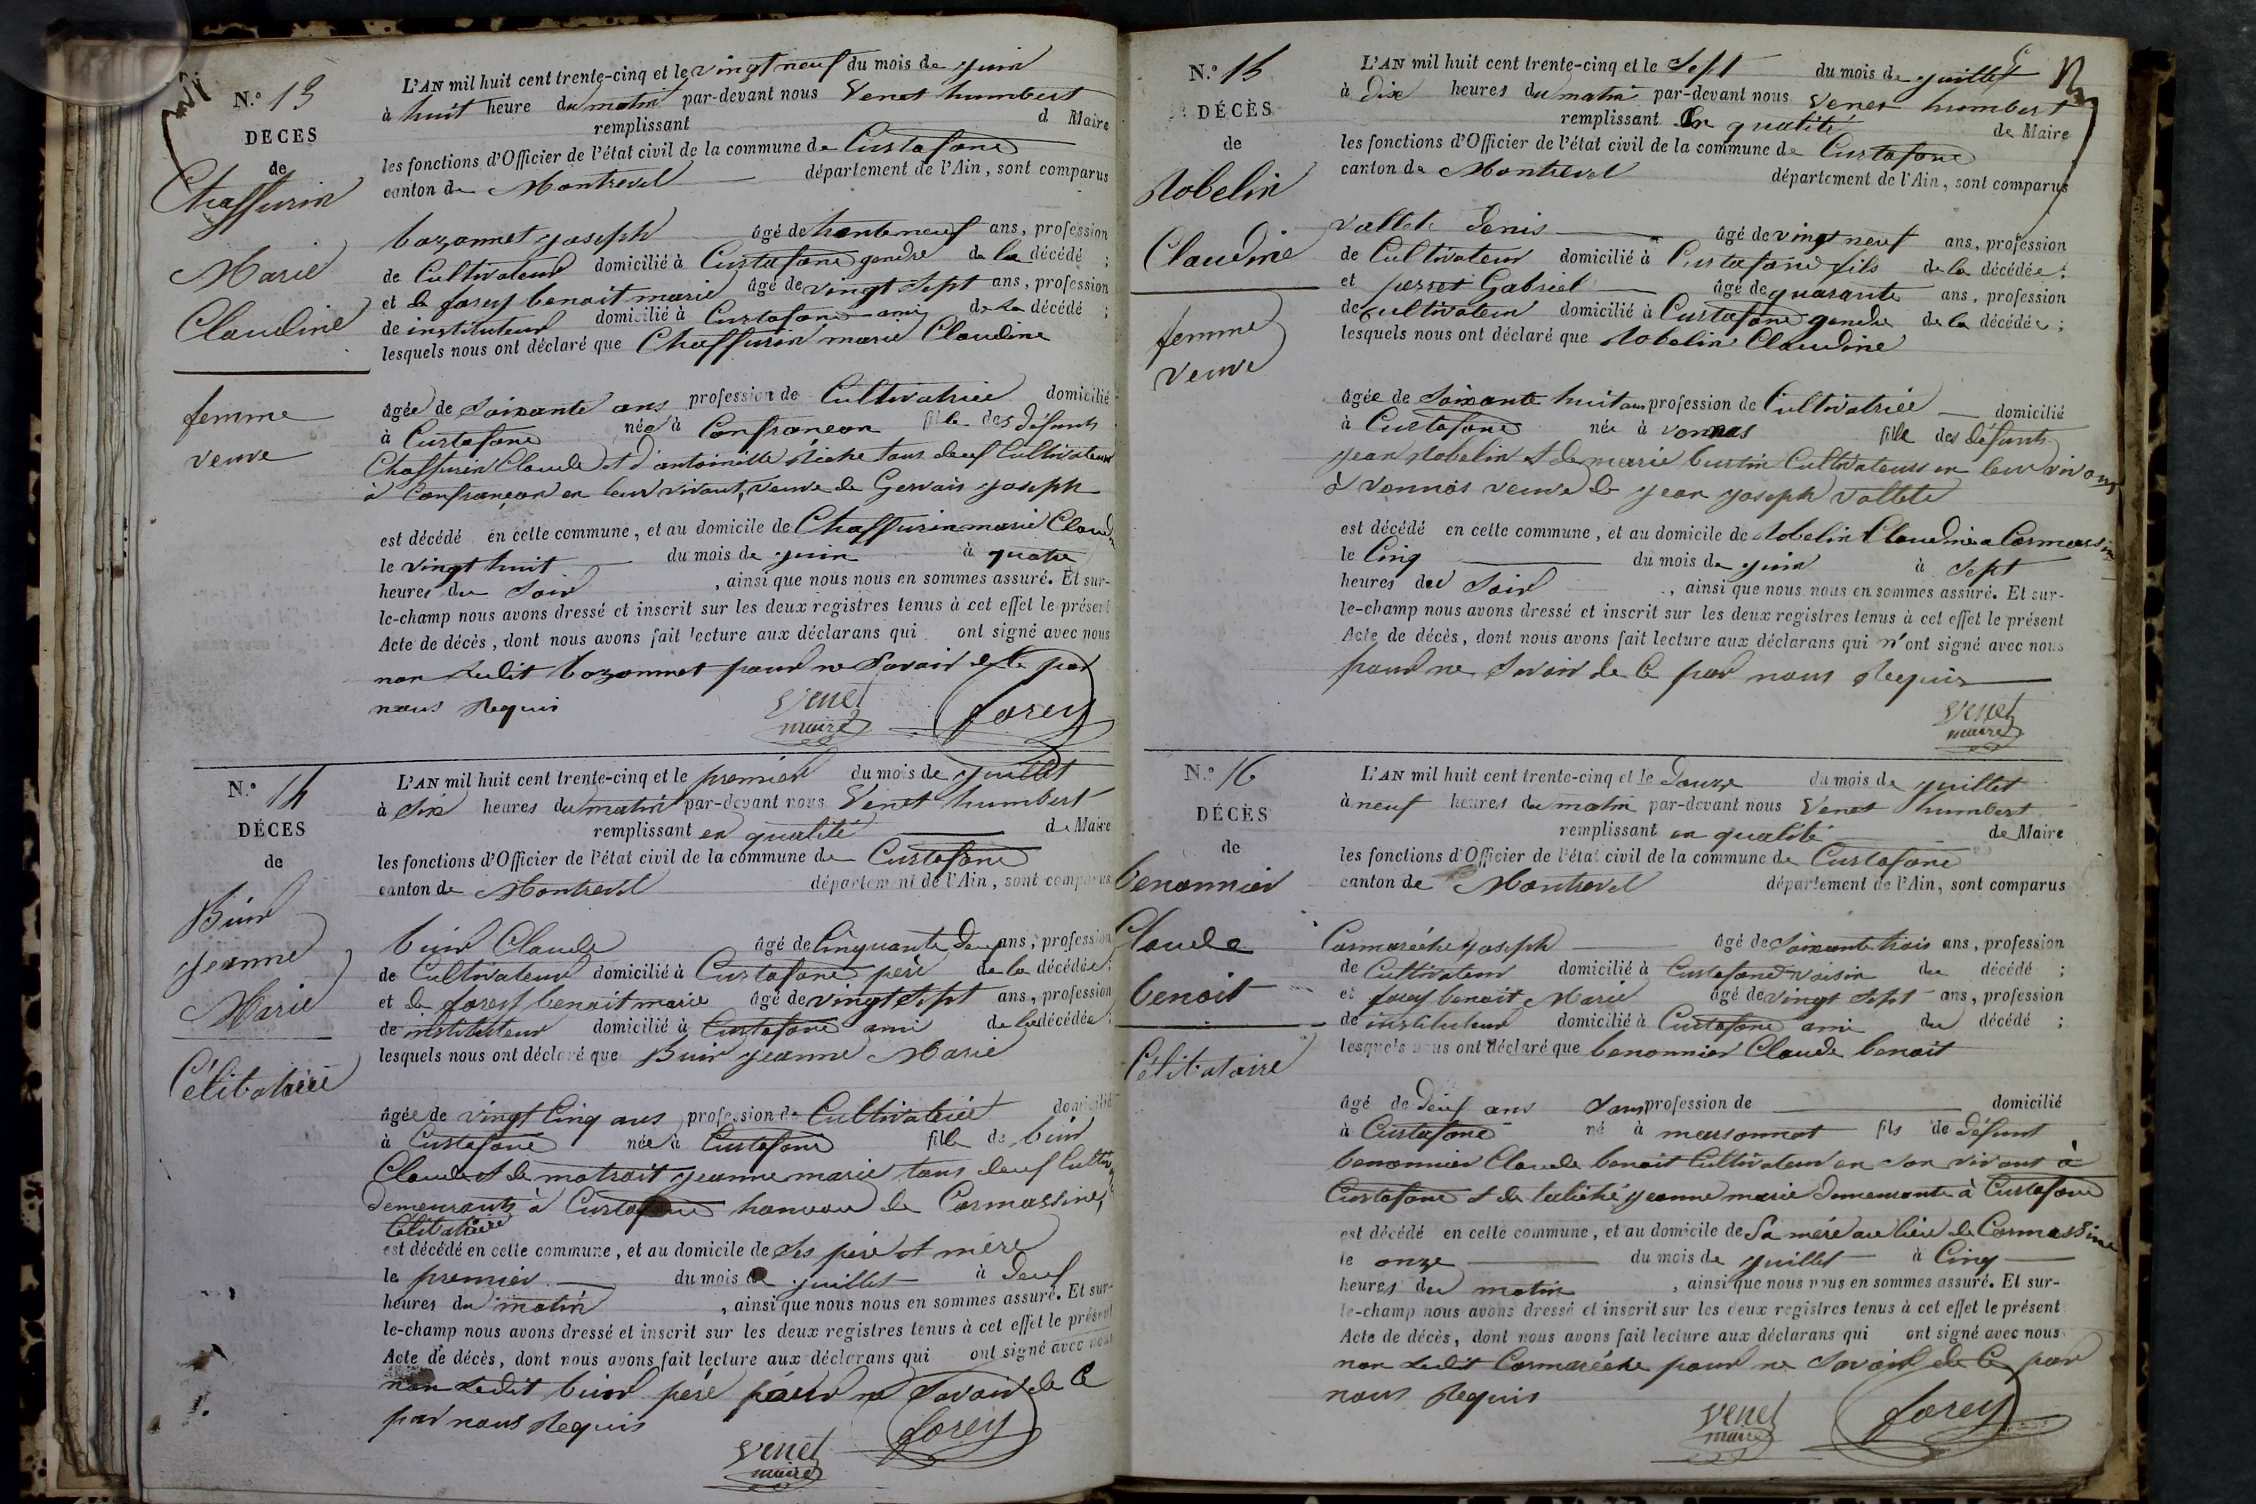 N.º 13
DÉCES
de
Chaffurin
Marie
Claudine
femme
veuve
L'AN mil huit cent trente-cinq et le vingt neuf du mois de juin
à huit heure du matin par-devant nous Venet humbert
remplissant d Maire
les fonctions d'Officier de l'état civil de la commune de Curtafond
canton de Montrevel département de l'Ain, sont comparus
bozonnet joseph âgé de trente neuf ans, profession
de Cultivateur domicilié à Curtafond gendre de la décédé ;
et de forey benoit marie âgé de vingt sept ans, profession
de instituteur domicilié à Curtafond ami de la décédé ;
lesquels nous ont déclaré que Chaffurin marie Claudine
âgée de Soixante ans profession de Cultivatrice domicilié
à Curtafond née à Confrançon fille des défunts
Chaffurin Claude et d'antoinette tous deux Cultivateurs
à Confrançon en leur vivant, veuve de Gervais joseph
est décédé en cette commune, et au domicile de Chaffurin marie Claudine
le vingt huit du mois de juin à quatre
heures du Soir , ainsi que nous nous en sommes assuré. Et sur-
le-champ nous avons dressé et inscrit sur les deux registres tenus à cet effet le présent
Acte de décès, dont nous avons fait lecture aux déclarans qui ont signé avec nous
non ledit bozonnet pour ne Savoir de Ce par
nous Requis
Venet
maire
forey
N.º 14
DÉCES
de
Buir
jeanne
Marie
Célibataire
L'AN mil huit cent trente-cinq et le premier du mois de juillet
à Six heures du matin par-devant nous Venet humbert
remplissant en qualité de Maire
les fonctions d'Officier de l'état civil de la commune de Curtafond
canton de Montrevel département de l'Ain, sont comparus
buir Claude âgé de Cinquante deux ans, profession
de Cultivateur domicilié à Curtafond père de la décédée ;
et de forey benoit marie âgé de vingt Sept ans, profession
de instituteur domicilié à Curtafond ami de la décédée ;
lesquels nous ont déclaré que Buir jeanne Marie
âgée de vingt Cinq ans profession de Cultivatrice domicilié
à Curtafond née à Curtafond fille de buir
Claude et de matrait jeanne marie tous deux Cultiv
demeurants à Curtafond hameau de Cormassine,
Célibataire
est décédé en cette commune, et au domicile de Ses père et mère
le premier du mois de juillet à deux
heures du matin , ainsi que nous nous en sommes assuré. Et sur-
le-champ nous avons dressé et inscrit sur les deux registres tenus à cet effet le présent
Acte de décès, dont nous avons fait lecture aux déclarans qui ont signé avec nous
non Ledit buir père pour ne Savoir de Ce
par nous Requis
Venet
maire
forey
N.º 15
DÉCÈS
de
Robelin
Claudine
femme
veuve
L'AN mil huit cent trente-cinq et le Sept du mois de juillet
à dix heures du matin par-devant nous Venet humbert
remplissant en qualité de Maire
les fonctions d'Officier de l'état civil de la commune de Curtafond
canton de Montrevel département de l'Ain, sont comparus
vallet denis âgé de vingt neuf ans, profession
de Cultivateur domicilié à Curtafond fils de la décédée ;
et perret Gabriel âgé de quarante ans, profession
de Cultivateur domicilié à Curtafond gendre de la décédée ;
lesquels nous ont déclaré que Robelin Claudine
âgée de Soixante huit ans profession de Cultivatrice domicilié
à Curtafond née à vonnas fille des défunts
jean Robelin et de marie Cultivateurs en leur vivant
à vonnas veuve de jean joseph vallet
est décédé en cette commune, et au domicile de Robelin Claudine a Cormassine
le Cinq du mois de juin à Sept
heures du Soir , ainsi que nous nous en sommes assuré. Et sur-
le-champ nous avons dressé et inscrit sur les deux registres tenus à cet effet le présent
Acte de décès, dont nous avons fait lecture aux déclarans qui n'ont signé avec nous
pour ne Savoir de Ce par nous Requis
Venet
maire
N.º 16
DÉCÈS
de
benonnier
Claude
benoit
Célibataire
L'AN mil huit cent trente-cinq et le douze du mois de juillet
à neuf heures du matin par-devant nous Venet humbert
remplissant en qualité de Maire
les fonctions d'Officier de l'état civil de la commune de Curtafond
canton de Montrevel département de l'Ain, sont comparus
Cormarèche joseph âgé de Soixante trois ans, profession
de Cultivateur domicilié à Curtafond voisin du décédé ;
et forey benoit Marie âgé de vingt Sept ans, profession
de instituteur domicilié à Curtafond ami du décédé ;
lesquels nous ont déclaré que benonnier Claude benoit
âgé de deux ans Sans profession de domicilié
à Curtafond né à marsonnat fils de défunt
benonnier Claude benoit Cultivateur en Son vivant à
Curtafond et de jeanne marie demeurante à Curtafond
est décédé en cette commune, et au domicile de Sa mère au lieu de Cormassine
le onze du mois de juillet à Cinq
heures du matin , ainsi que nous nous en sommes assuré. Et sur-
le-champ nous avons dressé et inscrit sur les deux registres tenus à cet effet le présent
Acte de décès, dont nous avons fait lecture aux déclarans qui ont signé avec nous
non Ledit Cormarèche pour ne Savoir de Ce par
nous Requis
Venet
maire
forey